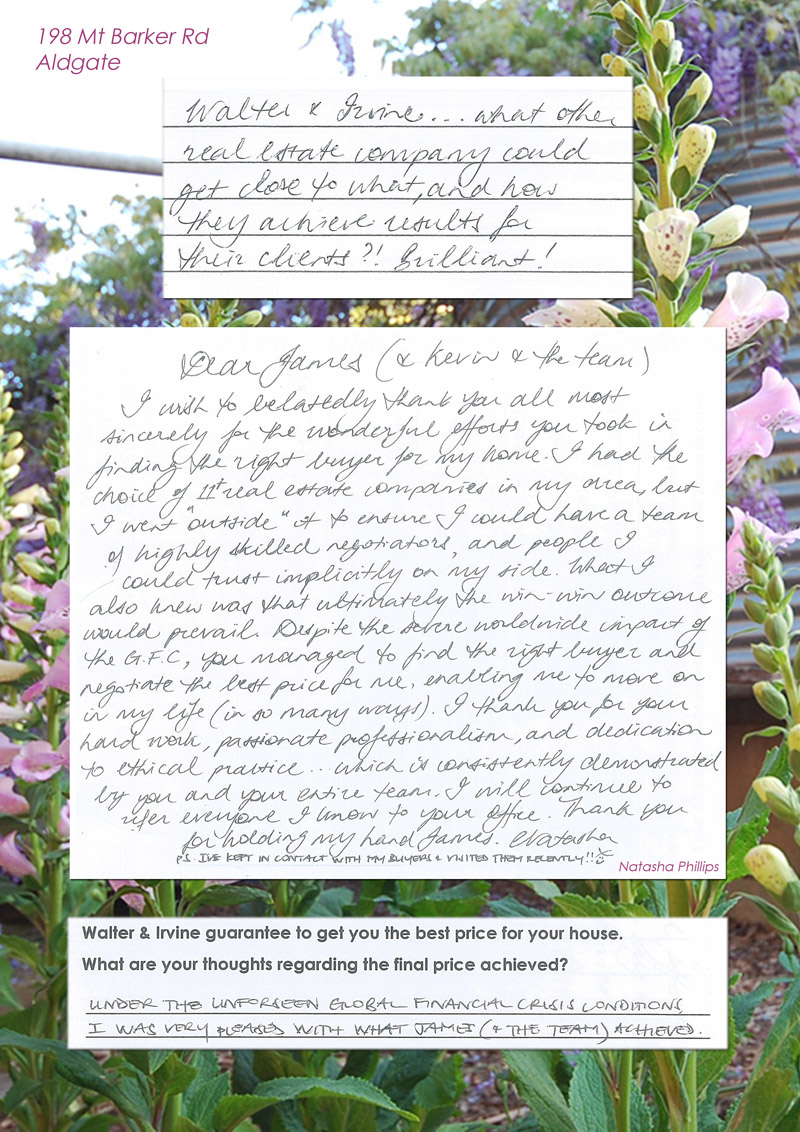 198 Mt Barker Rd
Aldgate
Walter & Irvine... what other
real estate company could
get close to what, and how
they achieve results for
their clients?! Brilliant!
Dear James (& Kevin & the team)
I wish to belatedly thank you all most
sincerely for the wonderful efforts you took in
finding the right buyer for my home. I had the
choice of 11+ real estate companies in my area, but
I went "outside" to ensure I could have a team
of highly skilled negotiators, and people I
could trust implicitly on my side. What I
also knew was that ultimately the win-win outcome
would prevail. Despite the severe worldwide impact of
the G.F.C, you managed to find the right buyer and
negotiate the best price for me, enabling me to move on
in my life (in so many ways). I thank you for your
hard work, passionate professionalism, and dedication
to ethical practice... which is consistently demonstrated
by you and your entire team. I will continue to
refer everyone I know to your office. Thank you
for holding my hand James. Natasha
P.S. I'VE KEPT IN CONTACT WITH MY BUYERS & VISITED THEM RECENTLY!!
Natasha Phillips
Walter & Irvine guarantee to get you the best price for your house.
What are your thoughts regarding the final price achieved?
UNDER THE UNFORSEEN GLOBAL FINANCIAL CRISIS CONDITIONS,
I WAS VERY PLEASED WITH WHAT JAMES (& THE TEAM) ACHIEVED.